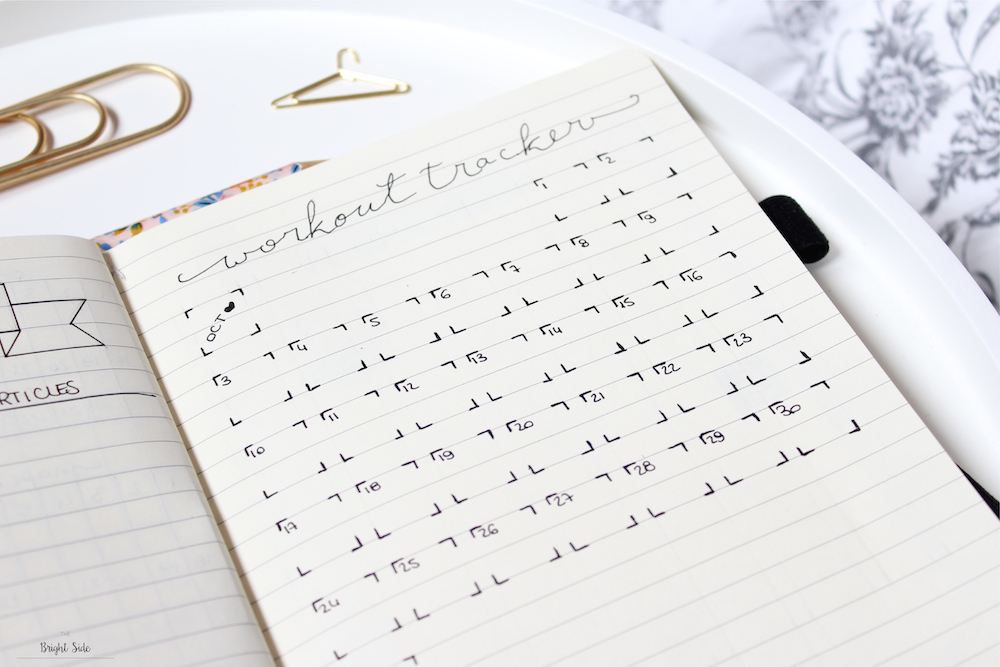 workout tracker
1 2
OCT
3 4 5 6 7 8 9
10 11 12 13 14 15 16
17 18 19 20 21 22 23
24 25 26 27 28 29 30
RTICLES
THE
Bright Side